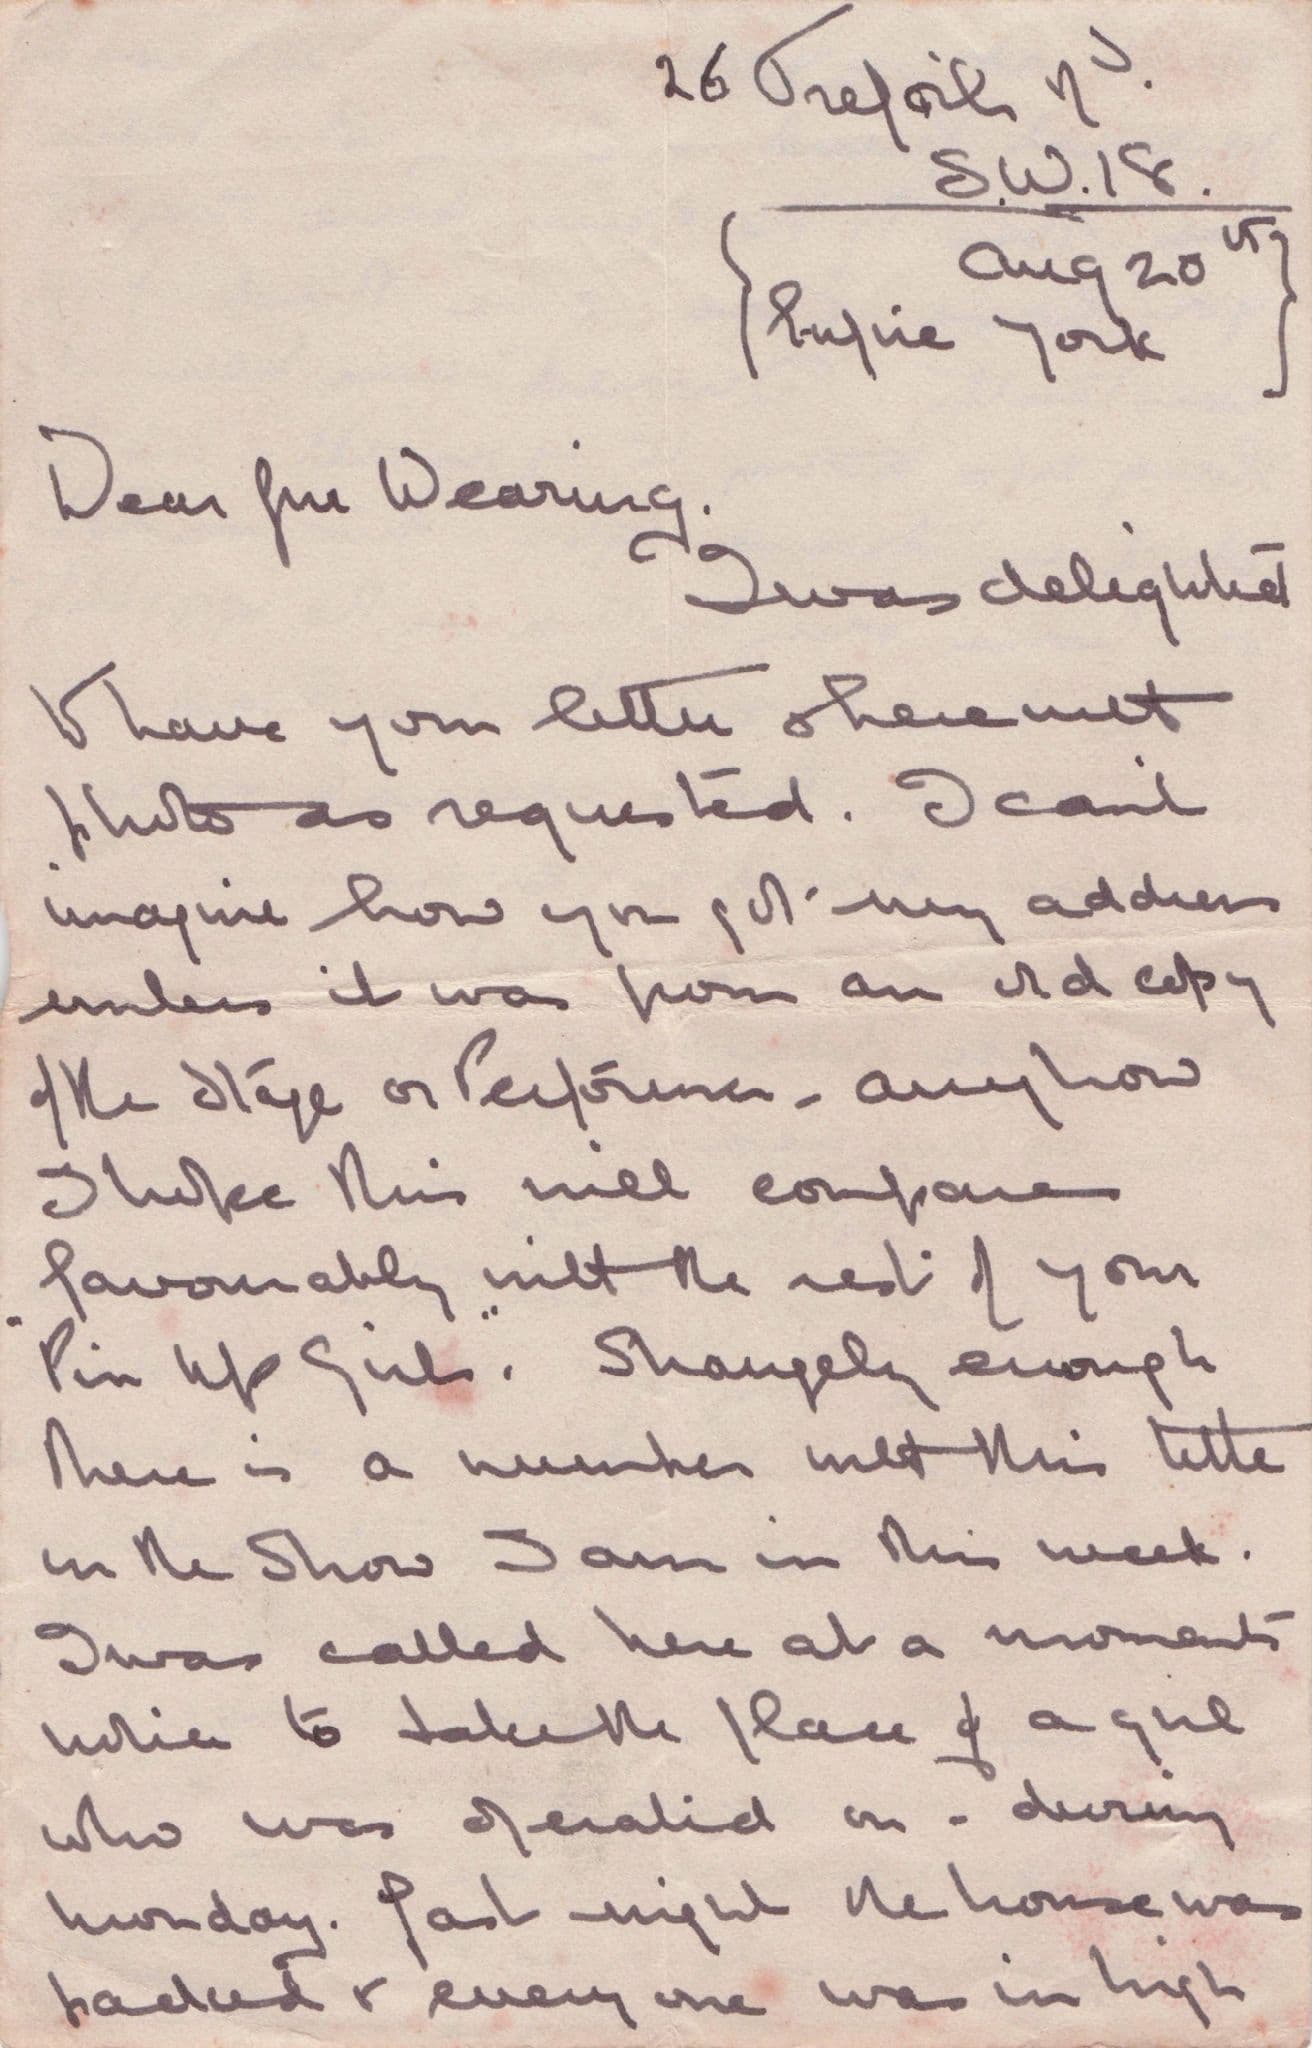 26 Trefoil Rd.
S.W.18.
Aug 20th
Empire York
Dear Gnr Wearing.
I was delighted
to have your letter & herewith
photo as requested. I can't
imagine how you got my address
unless it was from an old copy
of the Stage or Performer - anyhow
I hope this will compare
favourably with the rest of your
"Pin Up Girls". Strangely enough
there is a number with this title
in the Show I am in this week.
I was called here at a moments
notice to take the place of a girl
who was operated on - during
Monday. Last night the house was
packed & everyone was in high